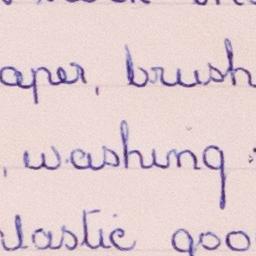 aper, brush
, washing
lastic goo